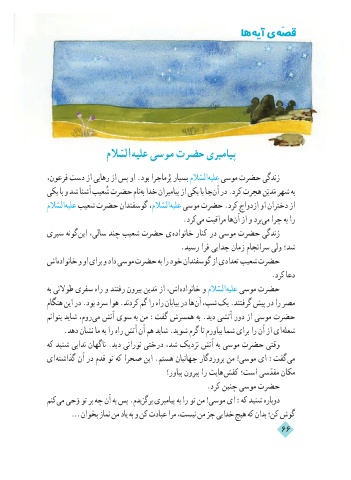 قصّه‌ی آیه‌ها
پیامبری حضرت موسی علیه‌السّلام
زندگی حضرت موسی علیه‌السّلام بسیار پُرماجرا بود. او پس از رهایی از دست فرعون،
به شهر مَدیَن هجرت کرد. در آن‌جا با یکی از پیامبران خدا به‌نام حضرت شُعیب آشنا شد و با یکی
از دختران او ازدواج کرد. حضرت موسی علیه‌السّلام، گوسفندان حضرت شعیب علیه‌السّلام
را به چرا می‌برد و از آن‌ها مراقبت می‌کرد.
زندگی حضرت موسی در کنار خانواده‌ی حضرت شعیب چند سالی، این‌گونه سپری
شد؛ ولی سرانجام زمان جدایی فرا رسید.
حضرت شعیب تعدادی از گوسفندان خود را به حضرت موسی داد و برای او و خانواده‌اش
دعا کرد.
حضرت موسی علیه‌السّلام و خانواده‌اش، از مَدین بیرون رفتند و راه سفری طولانی به
مصر را در پیش گرفتند. یک شب، آن‌ها در بیابان راه را گم کردند. هوا سرد بود. در این هنگام
حضرت موسی از دور آتشی دید. به همسرش گفت : من به سوی آتش می‌روم، شاید بتوانم
شعله‌ای از آن را برای شما بیاورم تا گرم شوید. شاید هم آن آتش راه را به ما نشان دهد.
وقتی حضرت موسی به آتش نزدیک شد، درختی نورانی دید. ناگهان ندایی شنید که
می‌گفت : ای موسی! من پروردگار جهانیان هستم. این صحرا که تو قدم در آن گذاشته‌ای
مکان مقدّسی است؛ کفش‌هایت را بیرون بیاور!
حضرت موسی چنین کرد.
دوباره شنید که : ای موسی! من تو را به پیامبری برگزیدم. پس به آن چه بر تو وَحی می‌کنم
گوش کن؛ بدان که هیچ خدایی جز من نیست، مرا عبادت کن و به یاد من نماز بخوان ...
۶۶